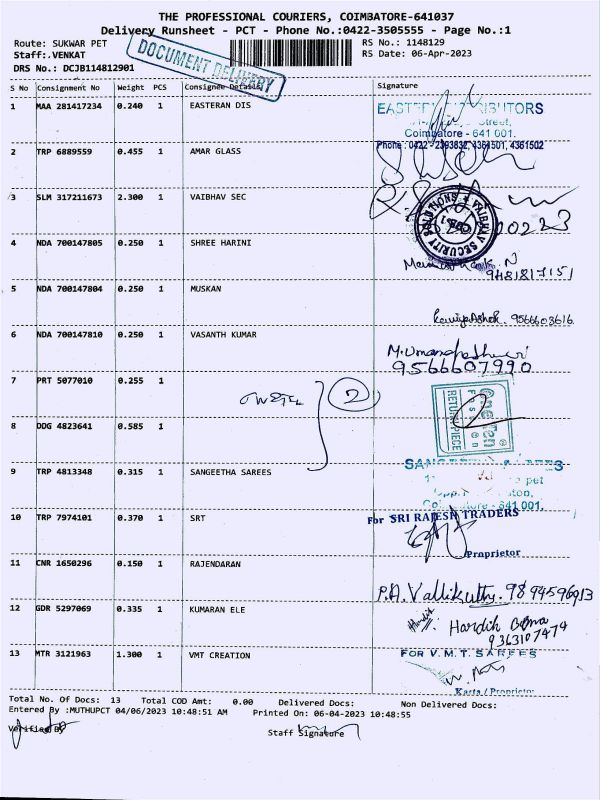 THE PROFESSIONAL COURIERS, COIMBATORE-641037
Delivery Runsheet - PCT - Phone No.:0422-3505555 - Page No.:1
Route: SUKWAR PET
RS No.: 1148129
Staff:.VENKAT
RS Date: 06-Apr-2023
DRS No.: DCJB114812901
DOCUMENT DELIVERY
S No Consignment No Weight PCS Consignee Details Signature
1 MAA 281417234 0.240 1 EASTERAN DIS
Street,
Coimbatore - 641 001.
Phone : 0422 - 2393632, 4361501, 4361502
2 TRP 6889559 0.455 1 AMAR GLASS
3 SLM 317211673 2.300 1 VAIBHAV SEC
VAIBHAV SECURITY SOLUTIONS
4 NDA 700147805 0.250 1 SHREE HARINI
9481817151
5 NDA 700147804 0.250 1 MUSKAN
9566603616
6 NDA 700147810 0.250 1 VASANTH KUMAR
9566607990
7 PRT 5077010 0.255 1
2
8 DDG 4823641 0.585 1
One Ten
RETURN PIECE
9 TRP 4813348 0.315 1 SANGEETHA SAREES
10 TRP 7974101 0.370 1 SRT
For SRI RAJESH TRADERS
Proprietor
11 CNR 1650296 0.150 1 RAJENDARAN
P.A. Vallikutty. 9894596913
12 GDR 5297069 0.335 1 KUMARAN ELE
Hardik
9363107474
13 MTR 3121963 1.300 1 VMT CREATION
FOR V.M.T. SAREES
Karta / Proprietor
Total No. Of Docs: 13 Total COD Amt: 0.00 Delivered Docs: Non Delivered Docs:
Entered By :MUTHUPCT 04/06/2023 10:48:51 AM Printed On: 06-04-2023 10:48:55
Verified By
Staff Signature